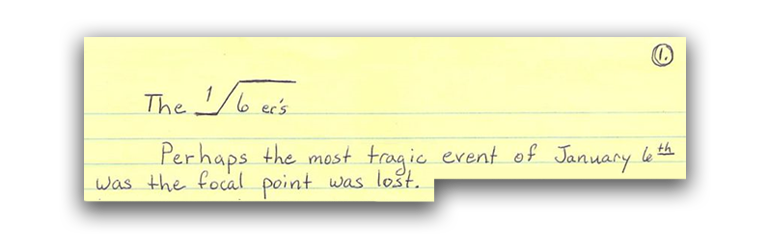 1.
The 1√6 er's
Perhaps the most tragic event of January 6th
was the focal point was lost.